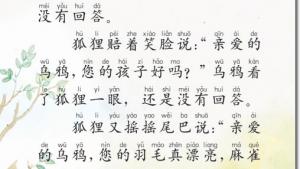 méi yǒu huí dá
没有回答。
hú li péi zhe xiào liǎn shuō qīn ài de
狐狸赔着笑脸说：“亲爱的
wū yā nín de hái zi hǎo ma wū yā kàn
乌鸦，您的孩子好吗？”乌鸦看
le hú li yì yǎn hái shi méi yǒu huí dá
了狐狸一眼，还是没有回答。
hú li yòu yáo yao wěi ba shuō qīn ài
狐狸又摇摇尾巴说：“亲爱
de wū yā nín de yǔ máo zhēn piào liang má què
的乌鸦，您的羽毛真漂亮，麻雀